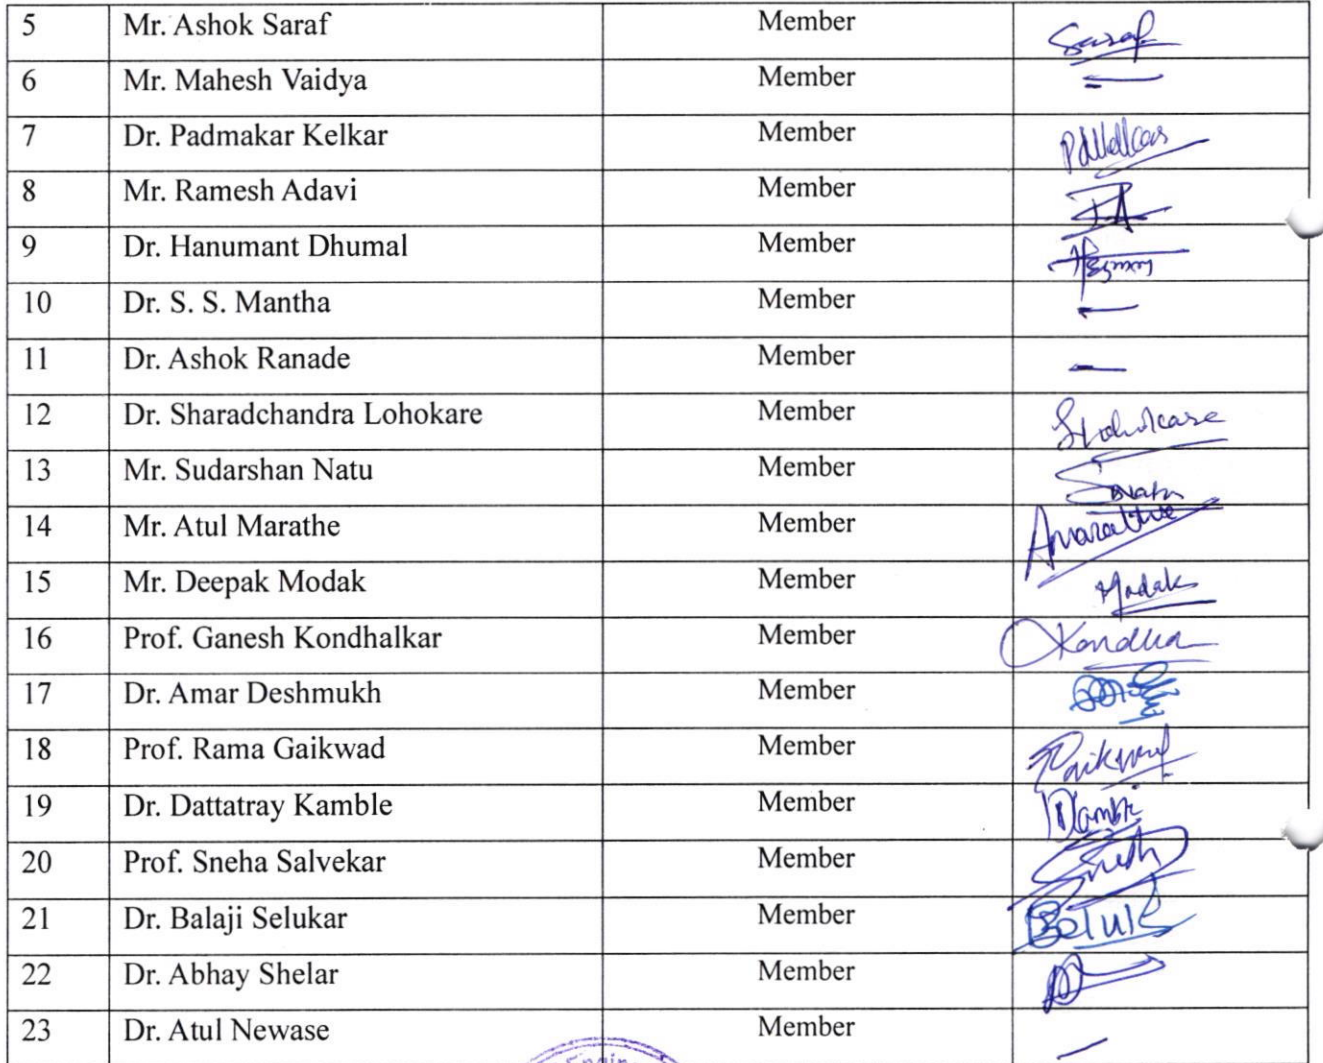 5 Mr. Ashok Saraf Member Saraf
6 Mr. Mahesh Vaidya Member
7 Dr. Padmakar Kelkar Member
8 Mr. Ramesh Adavi Member
9 Dr. Hanumant Dhumal Member
10 Dr. S. S. Mantha Member
11 Dr. Ashok Ranade Member
12 Dr. Sharadchandra Lohokare Member
13 Mr. Sudarshan Natu Member
14 Mr. Atul Marathe Member Amarathe
15 Mr. Deepak Modak Member Modak
16 Prof. Ganesh Kondhalkar Member
17 Dr. Amar Deshmukh Member
18 Prof. Rama Gaikwad Member
19 Dr. Dattatray Kamble Member
20 Prof. Sneha Salvekar Member
21 Dr. Balaji Selukar Member
22 Dr. Abhay Shelar Member
23 Dr. Atul Newase Member